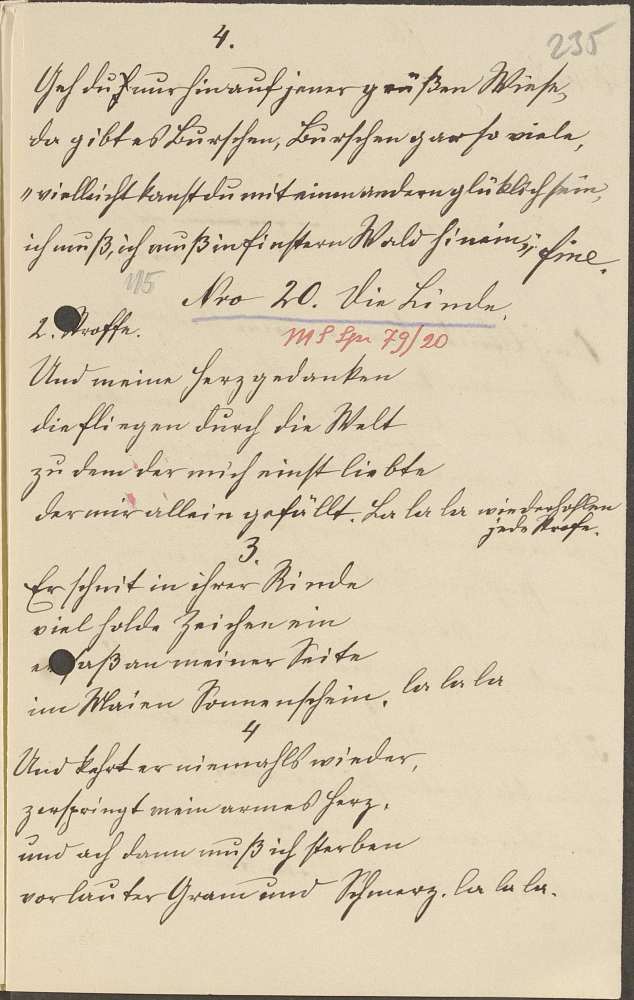 4.
235
Geh du nur hin auf jener grüßen Wiese,
da gibt es Burschen, Burschen gar so viele,
"vielleicht kanst du mit einem andern glüklich sein,
ich muß, ich muß in finstern Wald hinein," fine.
115
Nro 20. Die Linde.
2. Stroffe.
MS Spr 79/20
Und meine Herzgedanken
die fliegen durch die Welt
zu dem der mich einst liebte
der mir allein gefällt. La la la wiederhohlen
jede Strofe.
3.
Er schnit in ihrer Rinde
viel holde Zeichen ein
er saß an meiner Seite
im Maien Sonnenschein. la la la
4
Und kehrt er niemahls wieder,
zerspringt mein armes Herz,
und ach dann muß ich sterben
vor lauter Gram und Schmerz. la la la.